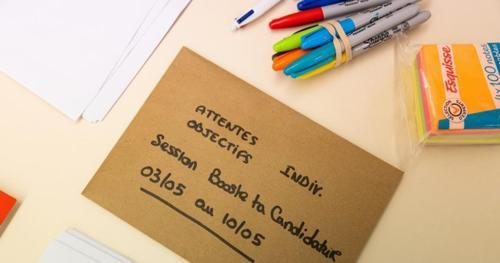 ATTENTES
OBJECTIFS INDIV.
Session Booste ta Candidature
03/05 au 10/05
Esquisse
4x100 notes